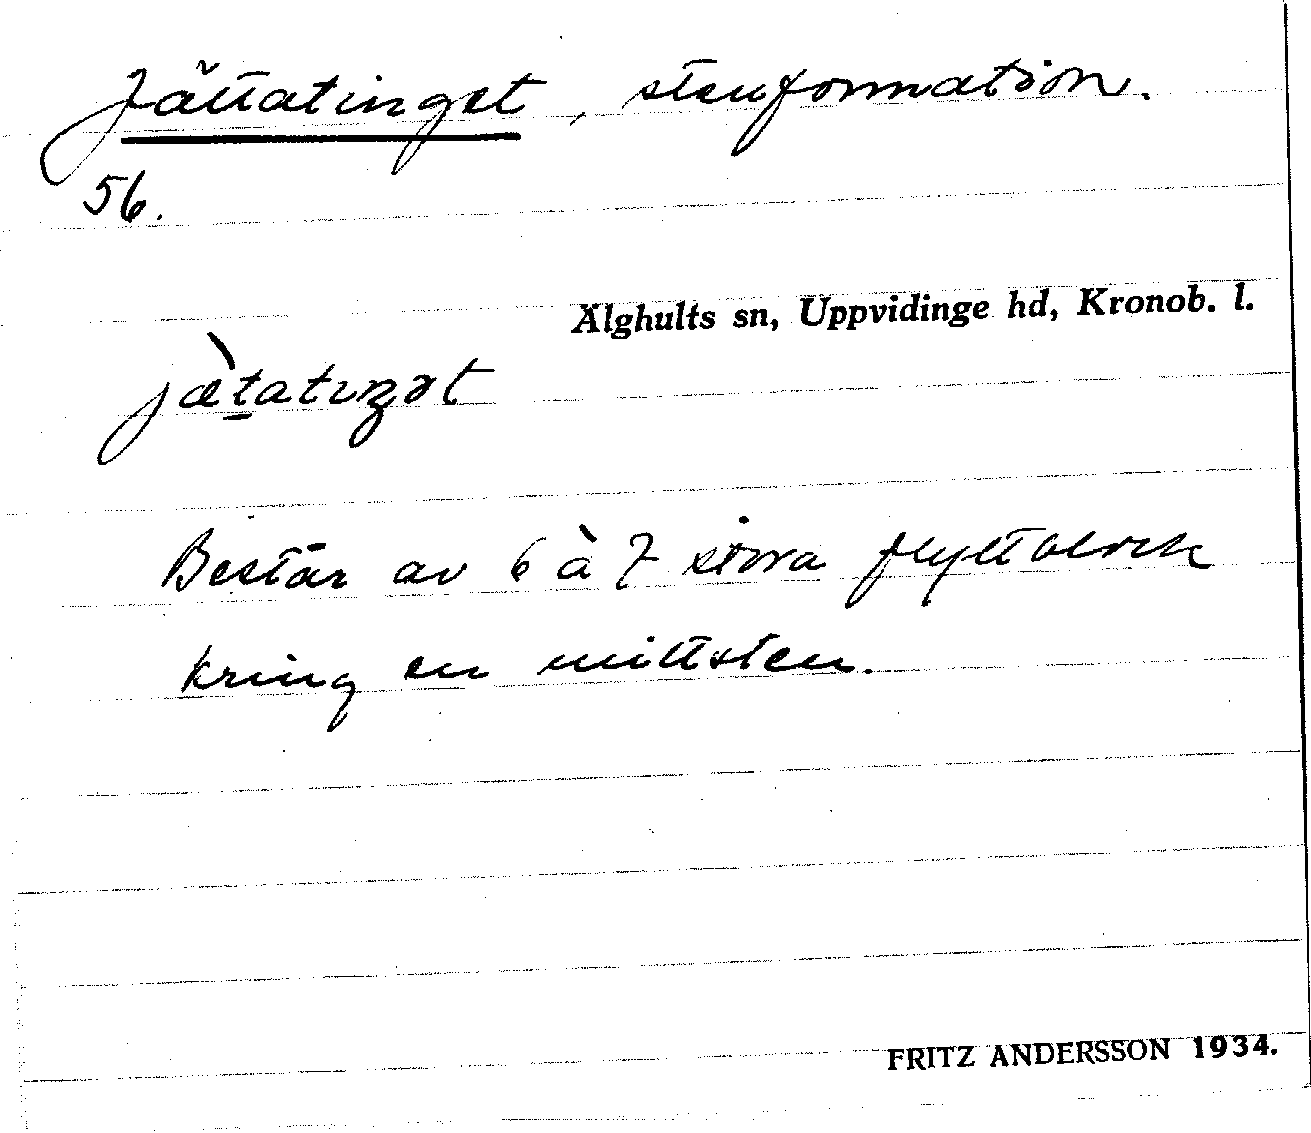 Jättatinget, stenformation.
56.
Älghults sn, Uppvidinge hd, Kronob. l.
jæ̀tatıŋət
Består av 6 à 7 stora flyttblock
kring en mittsten.
FRITZ ANDERSSON 1934.